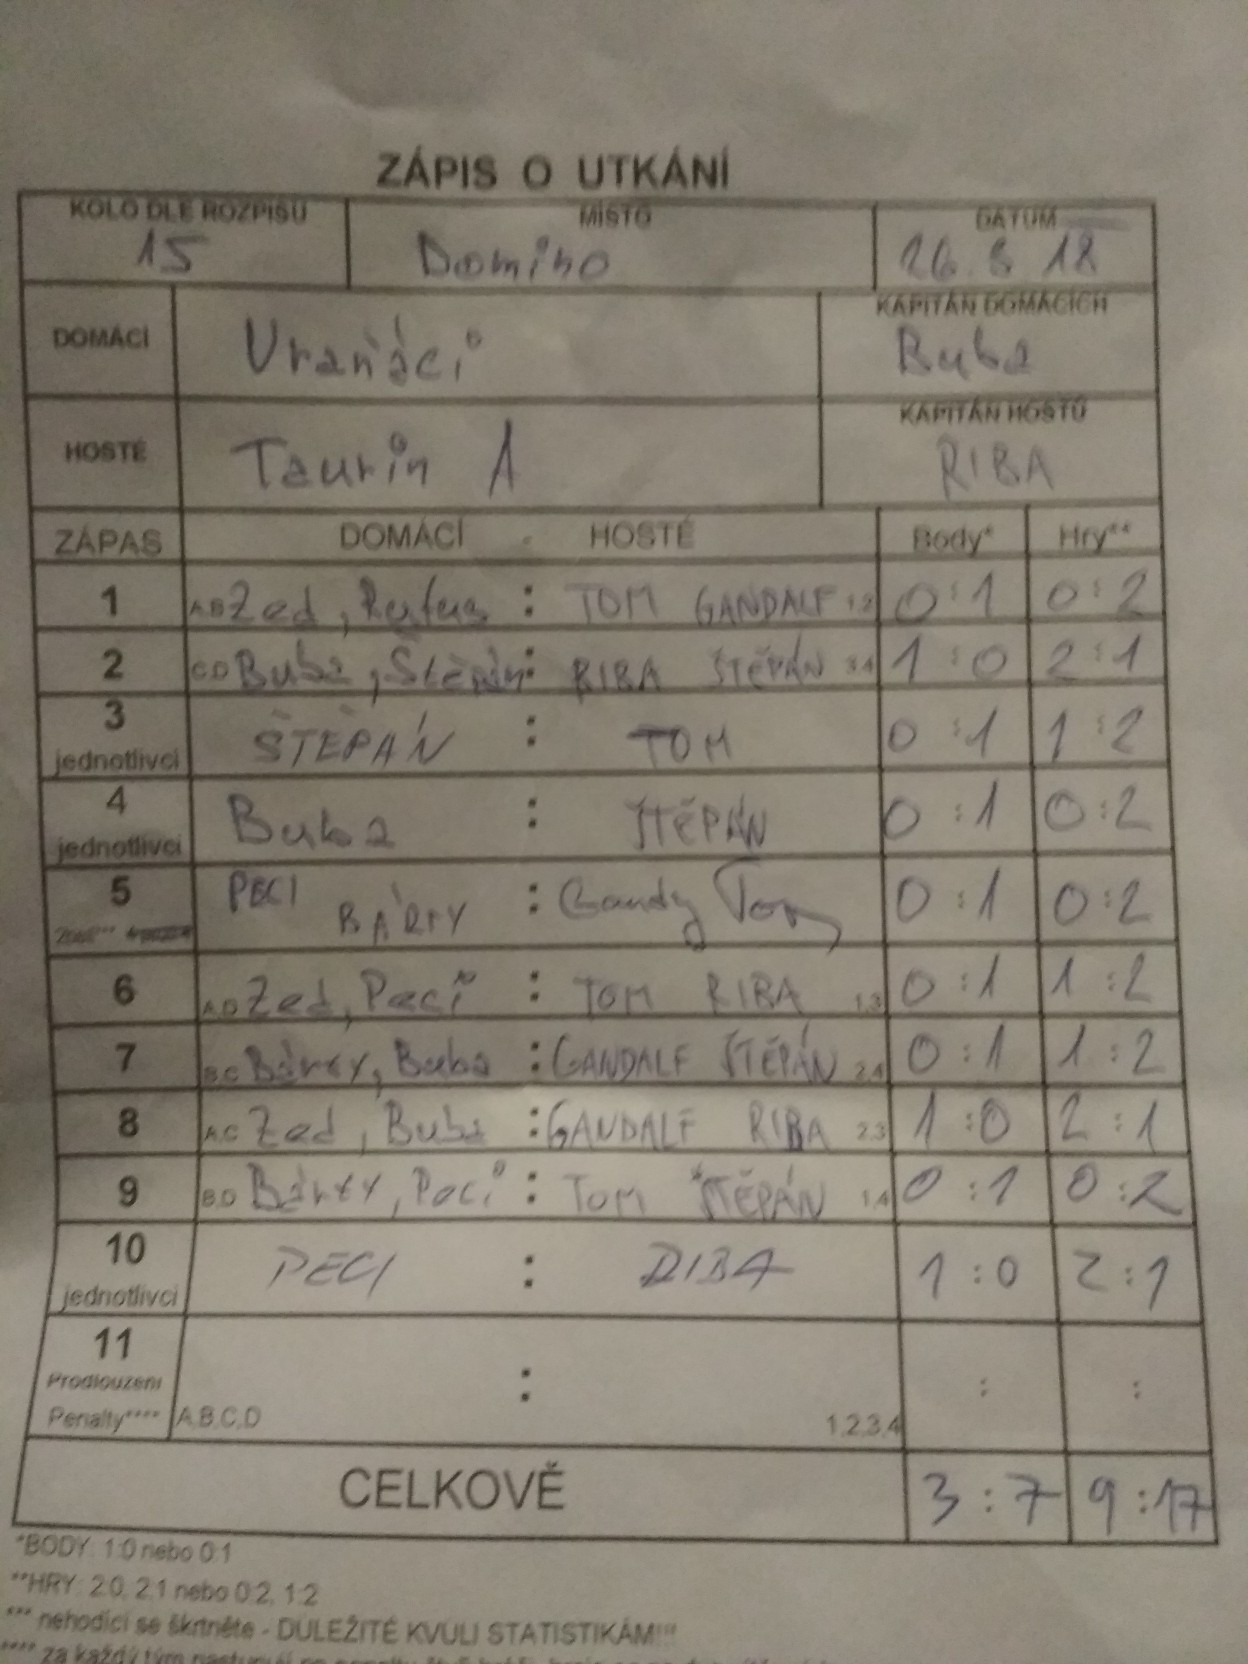 ZÁPIS O UTKÁNÍ
KOLO DLE ROZPISU MÍSTO DATUM
15 Domino 26. 18
KAPITÁN DOMÁCÍCH
DOMÁCÍ Vraňáci Buba
KAPITÁN HOSTŮ
HOSTÉ Taurin A RIBA
ZÁPAS DOMÁCÍ - HOSTÉ Body* Hry**
1 A,B Zed, Rufus : TOM GANDALF 1,2 0:1 0:2
2 C,D Buba, Štěpán : RIBA ŠTĚPÁN 3,4 1:0 2:1
3 jednotlivci ŠTĚPÁN : TOM 0:1 1:2
4 jednotlivci Buba : ŠTĚPÁN 0:1 0:2
5 PECI BÁRTY : Gandy Tom 0:1 0:2
6 A,D Zed, Peci : TOM RIBA 1,3 0:1 1:2
7 B,C Bárty, Buba : GANDALF ŠTĚPÁN 2,4 0:1 1:2
8 A,C Zed, Buba : GANDALF RIBA 2,3 1:0 2:1
9 B,D Bárty, Peci : TOM ŠTĚPÁN 1,4 0:1 0:2
10 jednotlivci PECI : RIBA 1:0 2:1
11 : : :
Prodloužení
Penalty**** A,B,C,D 1,2,3,4
CELKOVĚ 3:7 9:17
*BODY: 1:0 nebo 0:1
**HRY: 2:0, 2:1 nebo 0:2, 1:2
*** nehodící se škrtněte - DŮLEŽITÉ KVŮLI STATISTIKÁM!!!
**** za každý tým nastupují